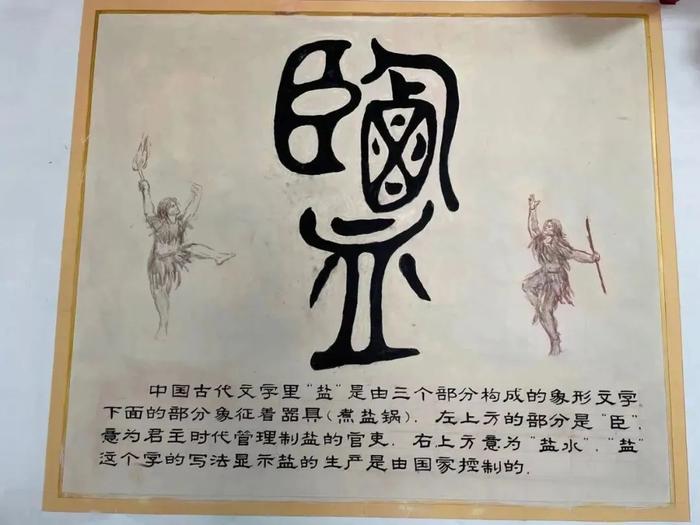 鹽
中国古代文字里"盐"是由三个部分构成的象形文字,
下面的部分象征着器具(煮盐锅). 左上方的部分是"臣",
意为君主时代管理制盐的官吏. 右上方意为"盐水". "盐"
这个字的写法显示盐的生产是由国家控制的.